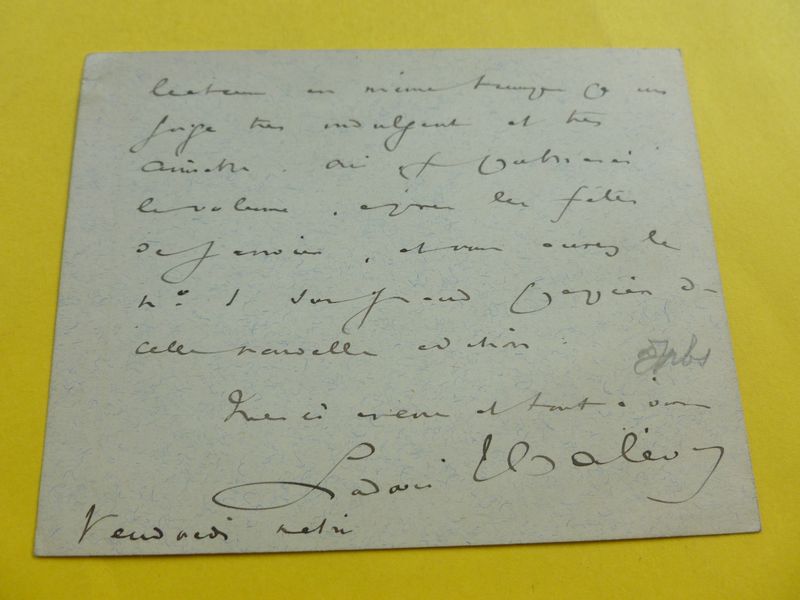 lecteur en même temps qu'un
juge très indulgent et très
aimable. Oui je publierai
le volume, après les fêtes
de janvier, et vous aurez le
n° 1 sur grand papier de
cette nouvelle édition.
Merci encore et tout à vous
Ludovic Halévy
Vendredi matin